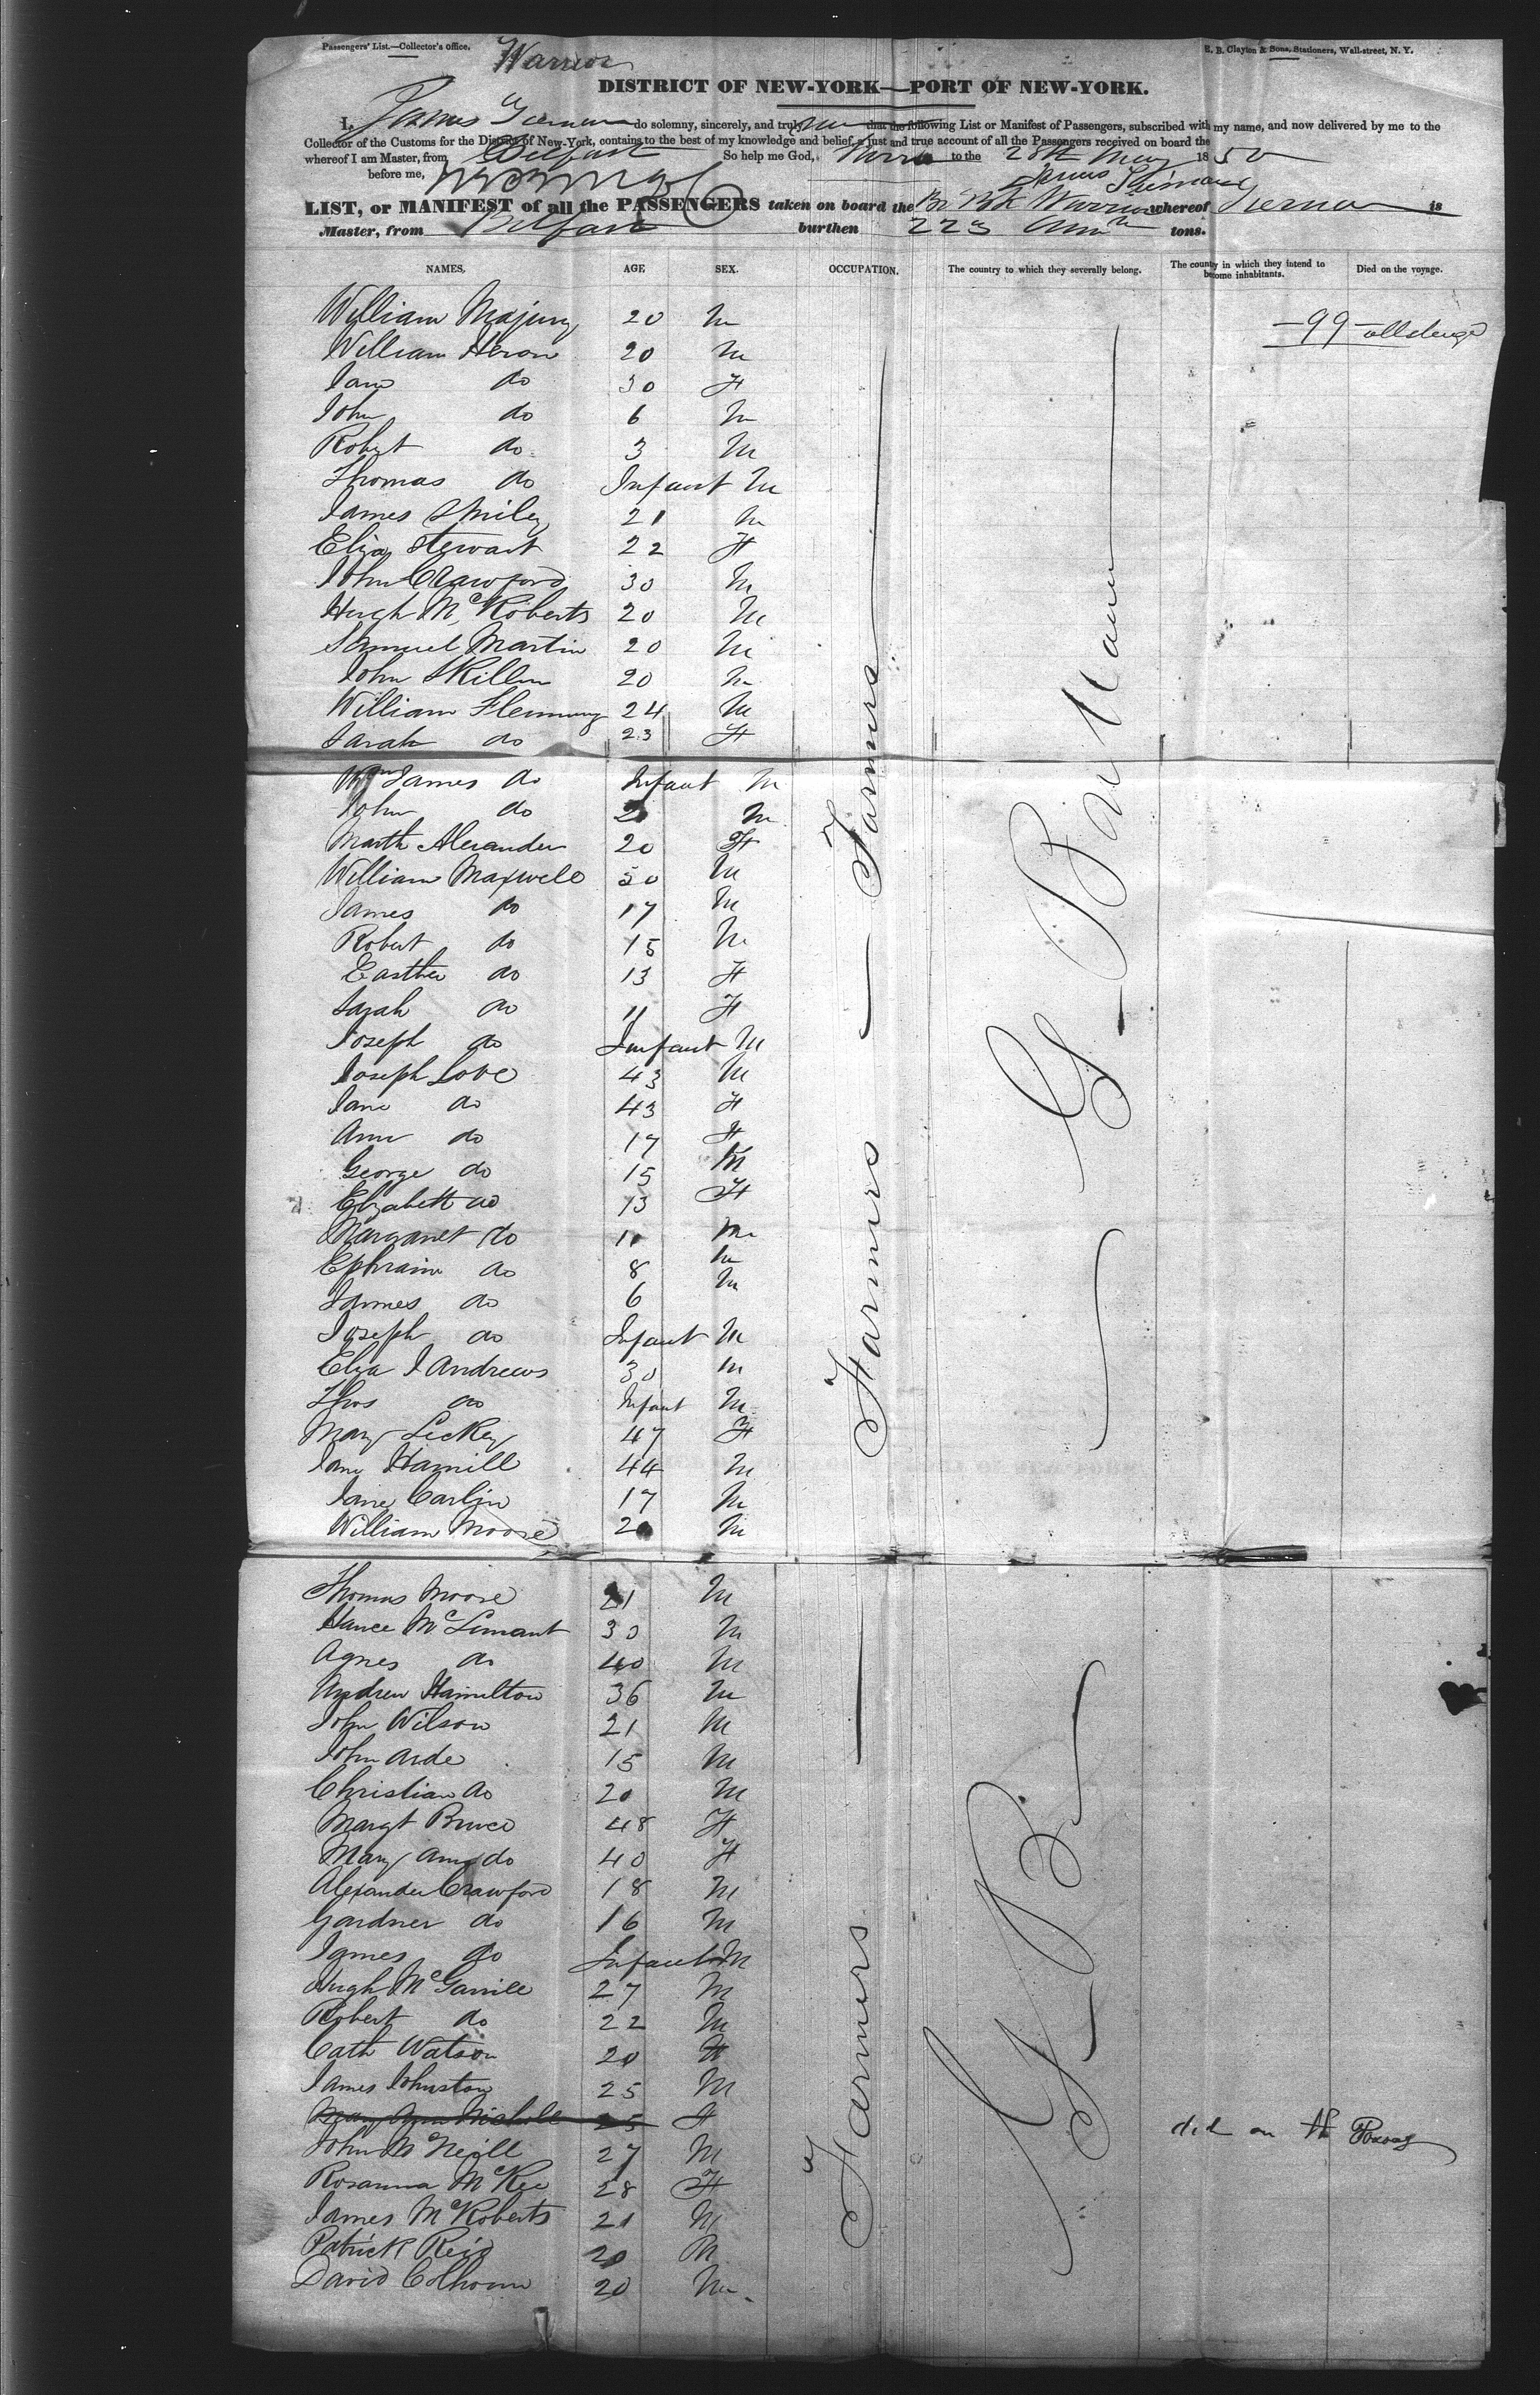 Passengers' List.—Collector's Office.
E. B. Clayton & Sons, Stationers, Wall-street, N. Y.
Warrior
DISTRICT OF NEW-YORK—PORT OF NEW-YORK.
I, James do solemny, sincerely, and truly that the following List or Manifest of Passengers, subscribed with my name, and now delivered by me to the
Collector of the Customs for the District of New-York, contains to the best of my knowledge and belief, a just and true account of all the Passengers received on board the
whereof I am Master, from Belfast So help me God, to the 28th May 1850
before me, James
LIST, or MANIFEST of all the PASSENGERS taken on board the Br Bk Warrior whereof is
Master, from Belfast burthen 223 tons.
NAMES, AGE SEX. OCCUPATION. The country to which they severally belong. The county in which they intend to become inhabitants. Died on the voyage.
William Majury 20 M
—99—
William Heron 20 M
Jane do 30 F
John do 6 M
Robert do 3 M
Thomas do Infant M
James Smiley 21 M
Eliza Stewart 22 F
John Crawford 30 M
Hugh McRoberts 20 M
Samuel Martin 20 M
John Skillen 20 M
William Fleming 24 M
Sarah do 23 F
Wm James do Infant M
John do 2 M
Marth Alexander 20 F
William Maxwell 50 M
James do 17 M
Robert do 15 M
Easther do 13 F
Sarah do 11 F
Joseph do Infant M
Joseph Love 43 M
Jane do 43 F
Ann do 17 F
George do 15 M
Elizabeth do 13 F
Margaret do 11 M
Ephraim do 8 M
James do 6 M
Joseph do Infant M
Eliza J Andrews 30 M
Thos do Infant M
Mary Leckey 47 F
Jane Hamill 44 M
Jane Carlin 17 M
William Moore 20 M
Farmers — Farmers
G Britain
Thomas Moore 21 M
Hance Mc 30 M
Agnes do 40 M
Andrew Hamilton 36 M
John Wilson 21 M
John Arde 15 M
Christian do 20 M
Margt Bruce 48 F
Mary Ann do 40 F
Alexander Crawford 18 M
Gardner do 16 M
James do Infant M
Hugh 27 M
Robert do 22 M
Cath Watson 20 F
James Johnston 25 M
Mary Ann 25 F died on
John McNeill 27 M
Rosanna McKee 28 F
James McRoberts 21 M
Patrick Reid 20 M
David Colhoun 20 M
Farmers
G B